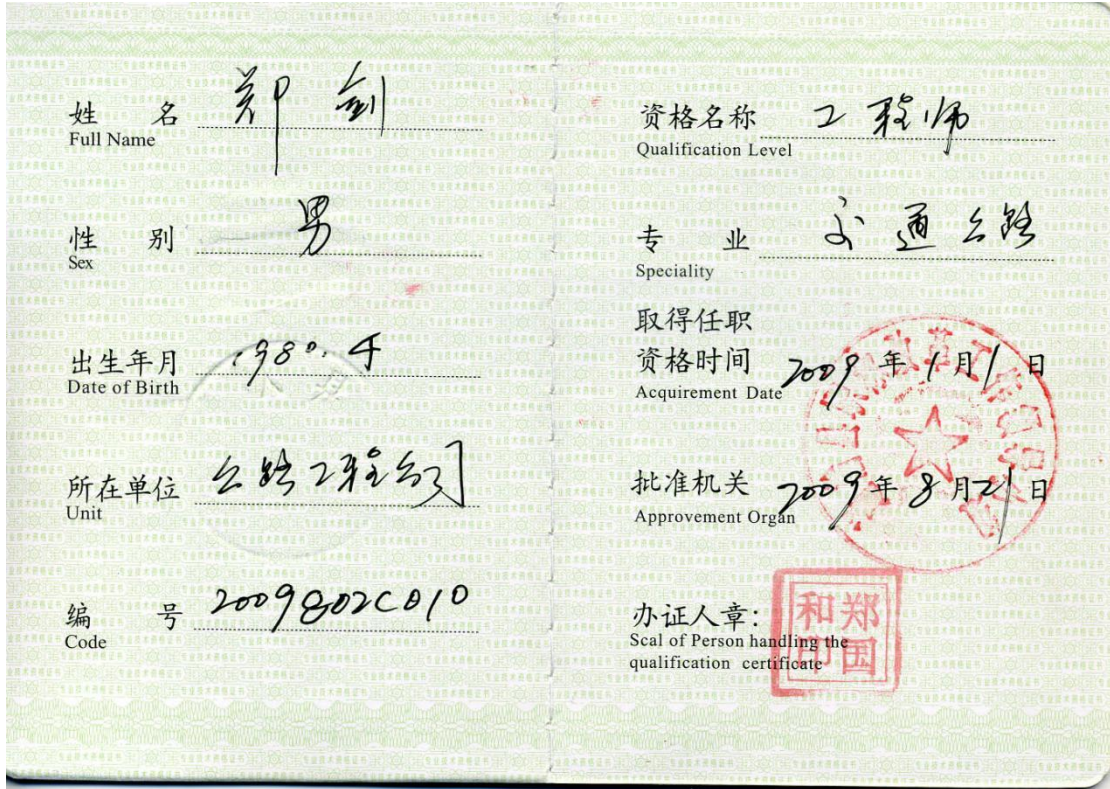 姓 名 郑 剑
Full Name
性 别 男
Sex
出生年月 1980.4
Date of Birth
所在单位 公路工程公司
Unit
编 号 2009802C010
Code
资格名称 工程师
Qualification Level
专 业 交通公路
Speciality
取得任职
资格时间 2009 年 1 月 1 日
Acquirement Date
批准机关 2009 年 8 月 21 日
Approvement Organ
办证人章：
Scal of Person handling the
qualification certificate
郑国
和印